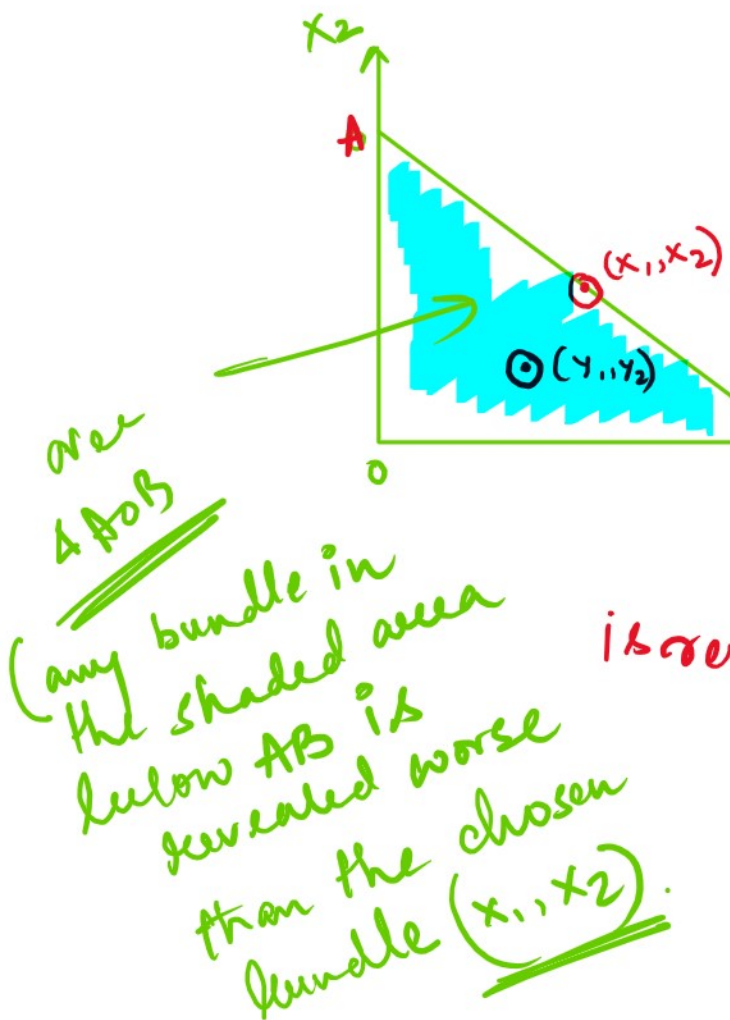 X2
A
(x1, x2)
(y1, y2)
O
ΔAOB
(any bundle in
the shaded area
below AB is
revealed worse
than the chosen
bundle (x1, x2).
is re